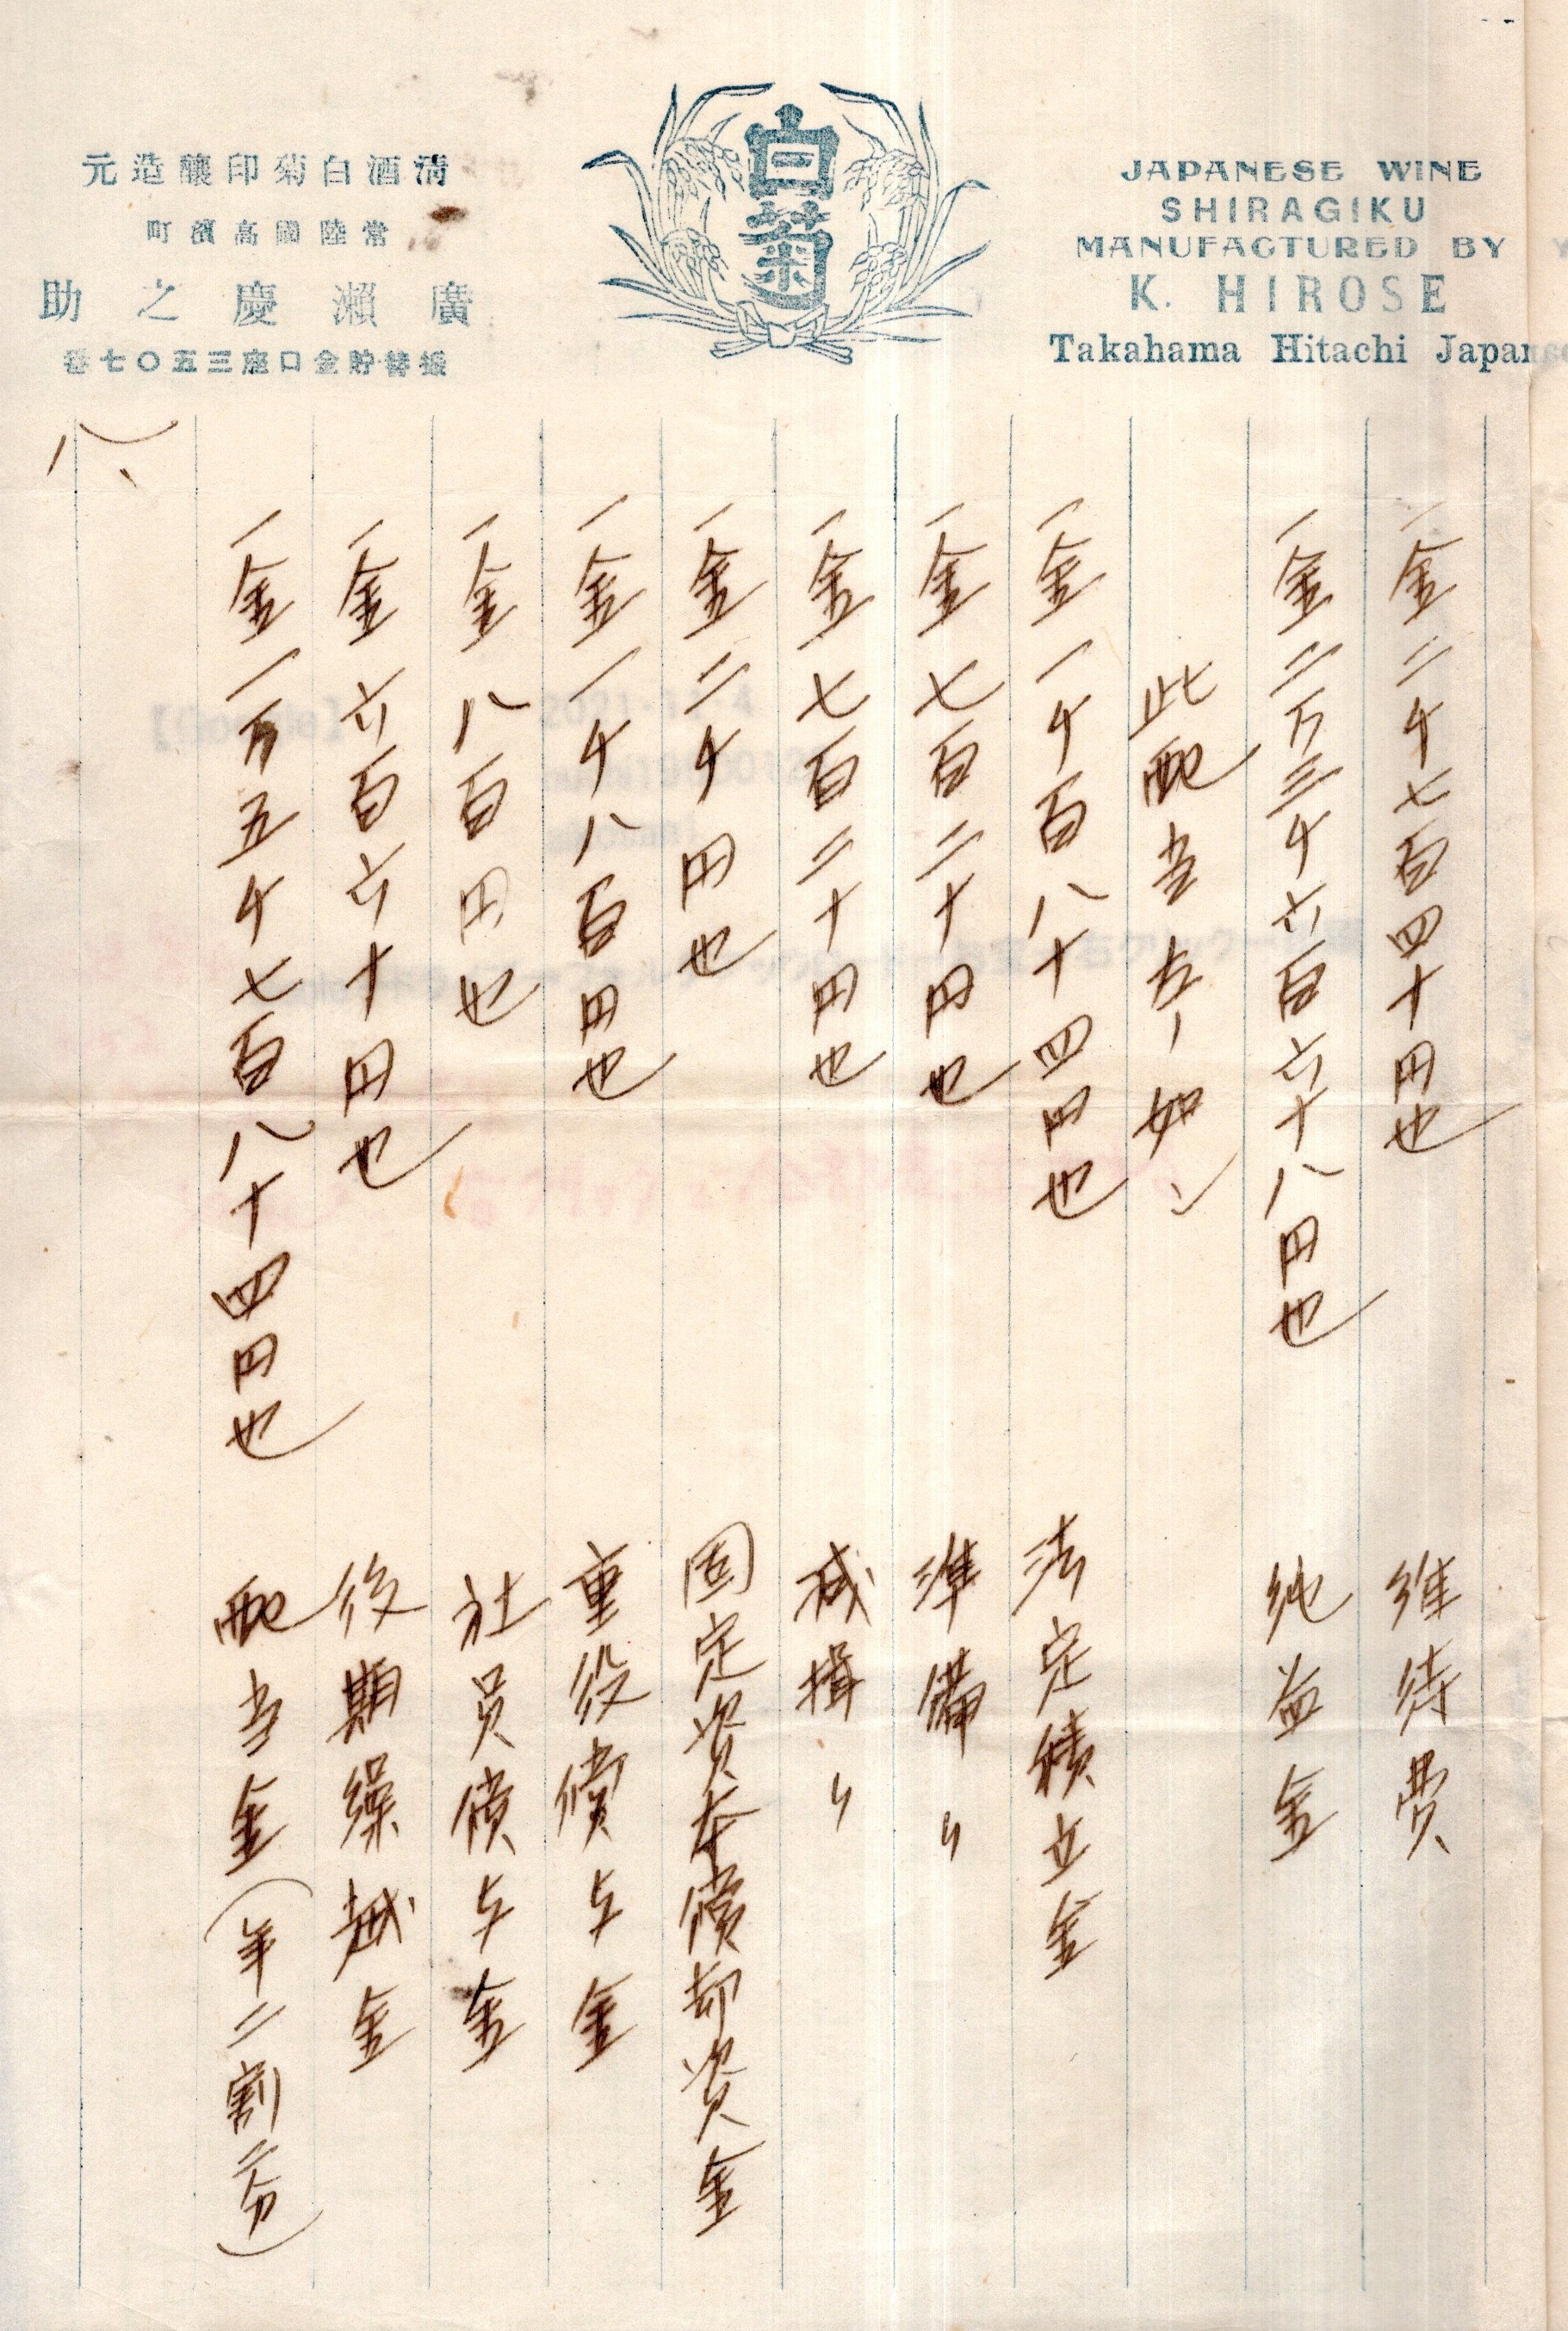 清酒白菊印釀造元
常陸國高濱町
廣瀨慶之助
振替貯金口座三五〇七番
白菊
JAPANESE WINE
SHIRAGIKU
MANUFACTURED BY
K. HIROSE
Takahama Hitachi Japan
一金二千七百四十円也 維持費
一金二万三千六百六十八円也 純益金
此配当左ノ如シ
一金一千百八十四円也 法定積立金
一金七百二十円也 準備〃
一金七百二十円也 減損〃
一金二千円也 固定資本償却資金
一金一千八百円也 重役償与金
一金八百円也 社員償与金
一金六百六十円也 後期繰越金
一金一万五千七百八十四円也 配当金(年二割二分)